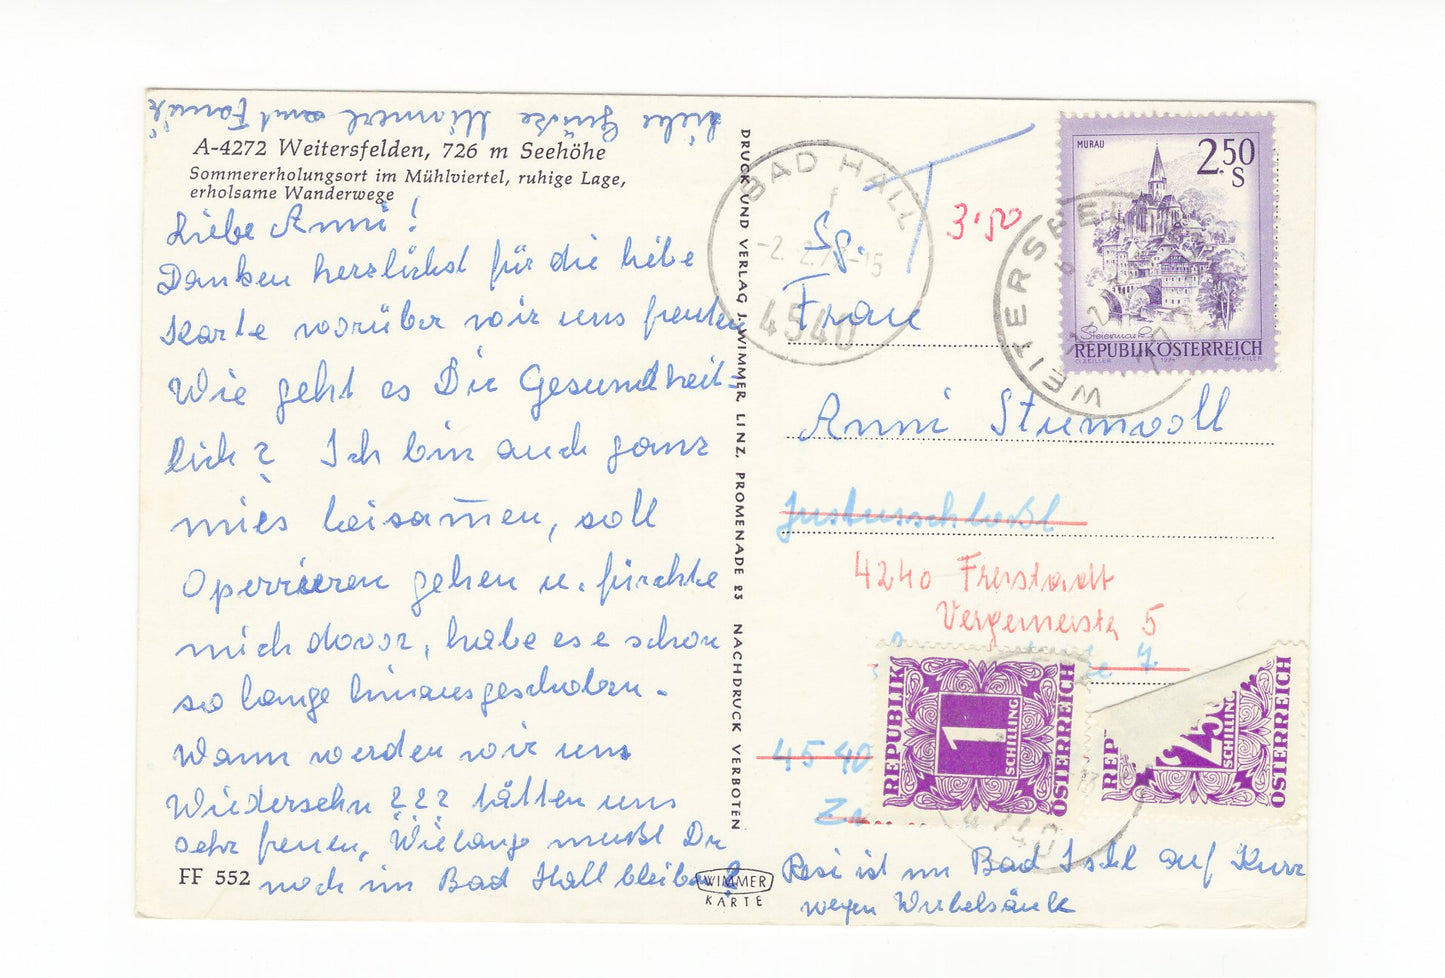 Liebe Grüße Mimmerl und Familie
A-4272 Weitersfelden, 726 m Seehöhe
Sommererholungsort im Mühlviertel, ruhige Lage,
erholsame Wanderwege
Liebe Anni!
Danken herzlichst für die liebe
Karte worüber wir uns freuten
Wie geht es Dir Gesundheit-
lich? Ich bin auch ganz
mies beisam̄en, soll
Operrieren gehen u. fürchte
mich davor, habe es e schon
so lange hinausgeschoben.
Wann werden wir uns
Wiedersehn ??? täten uns
sehr freuen, Wielange mußt Du
noch im Bad Hall bleiben?
FF 552
WIMMER
KARTE
DRUCK UND VERLAG J. WIMMER, LINZ, PROMENADE 23 NACHDRUCK VERBOTEN
BAD HALL
f
-2. 2. 7 -15
4540
T
3'50
WEITERSFE
b
MURAU
2.50
S
Steiermark
REPUBLIK ÖSTERREICH
O. ZEILLER 1974 W. PFEILER
Sg.
Frau
Anni Stumvoll
Justusschlößl
4240 Freistadt
Vergeinerstr. 5
7
4540
REPUBLIK
1
SCHILLING
ÖSTERREICH
REP
2 50
SCHILLING
ÖSTERREICH
4240
Resi ist in Bad Ischl auf Kurr
wegen Wirbelsäule